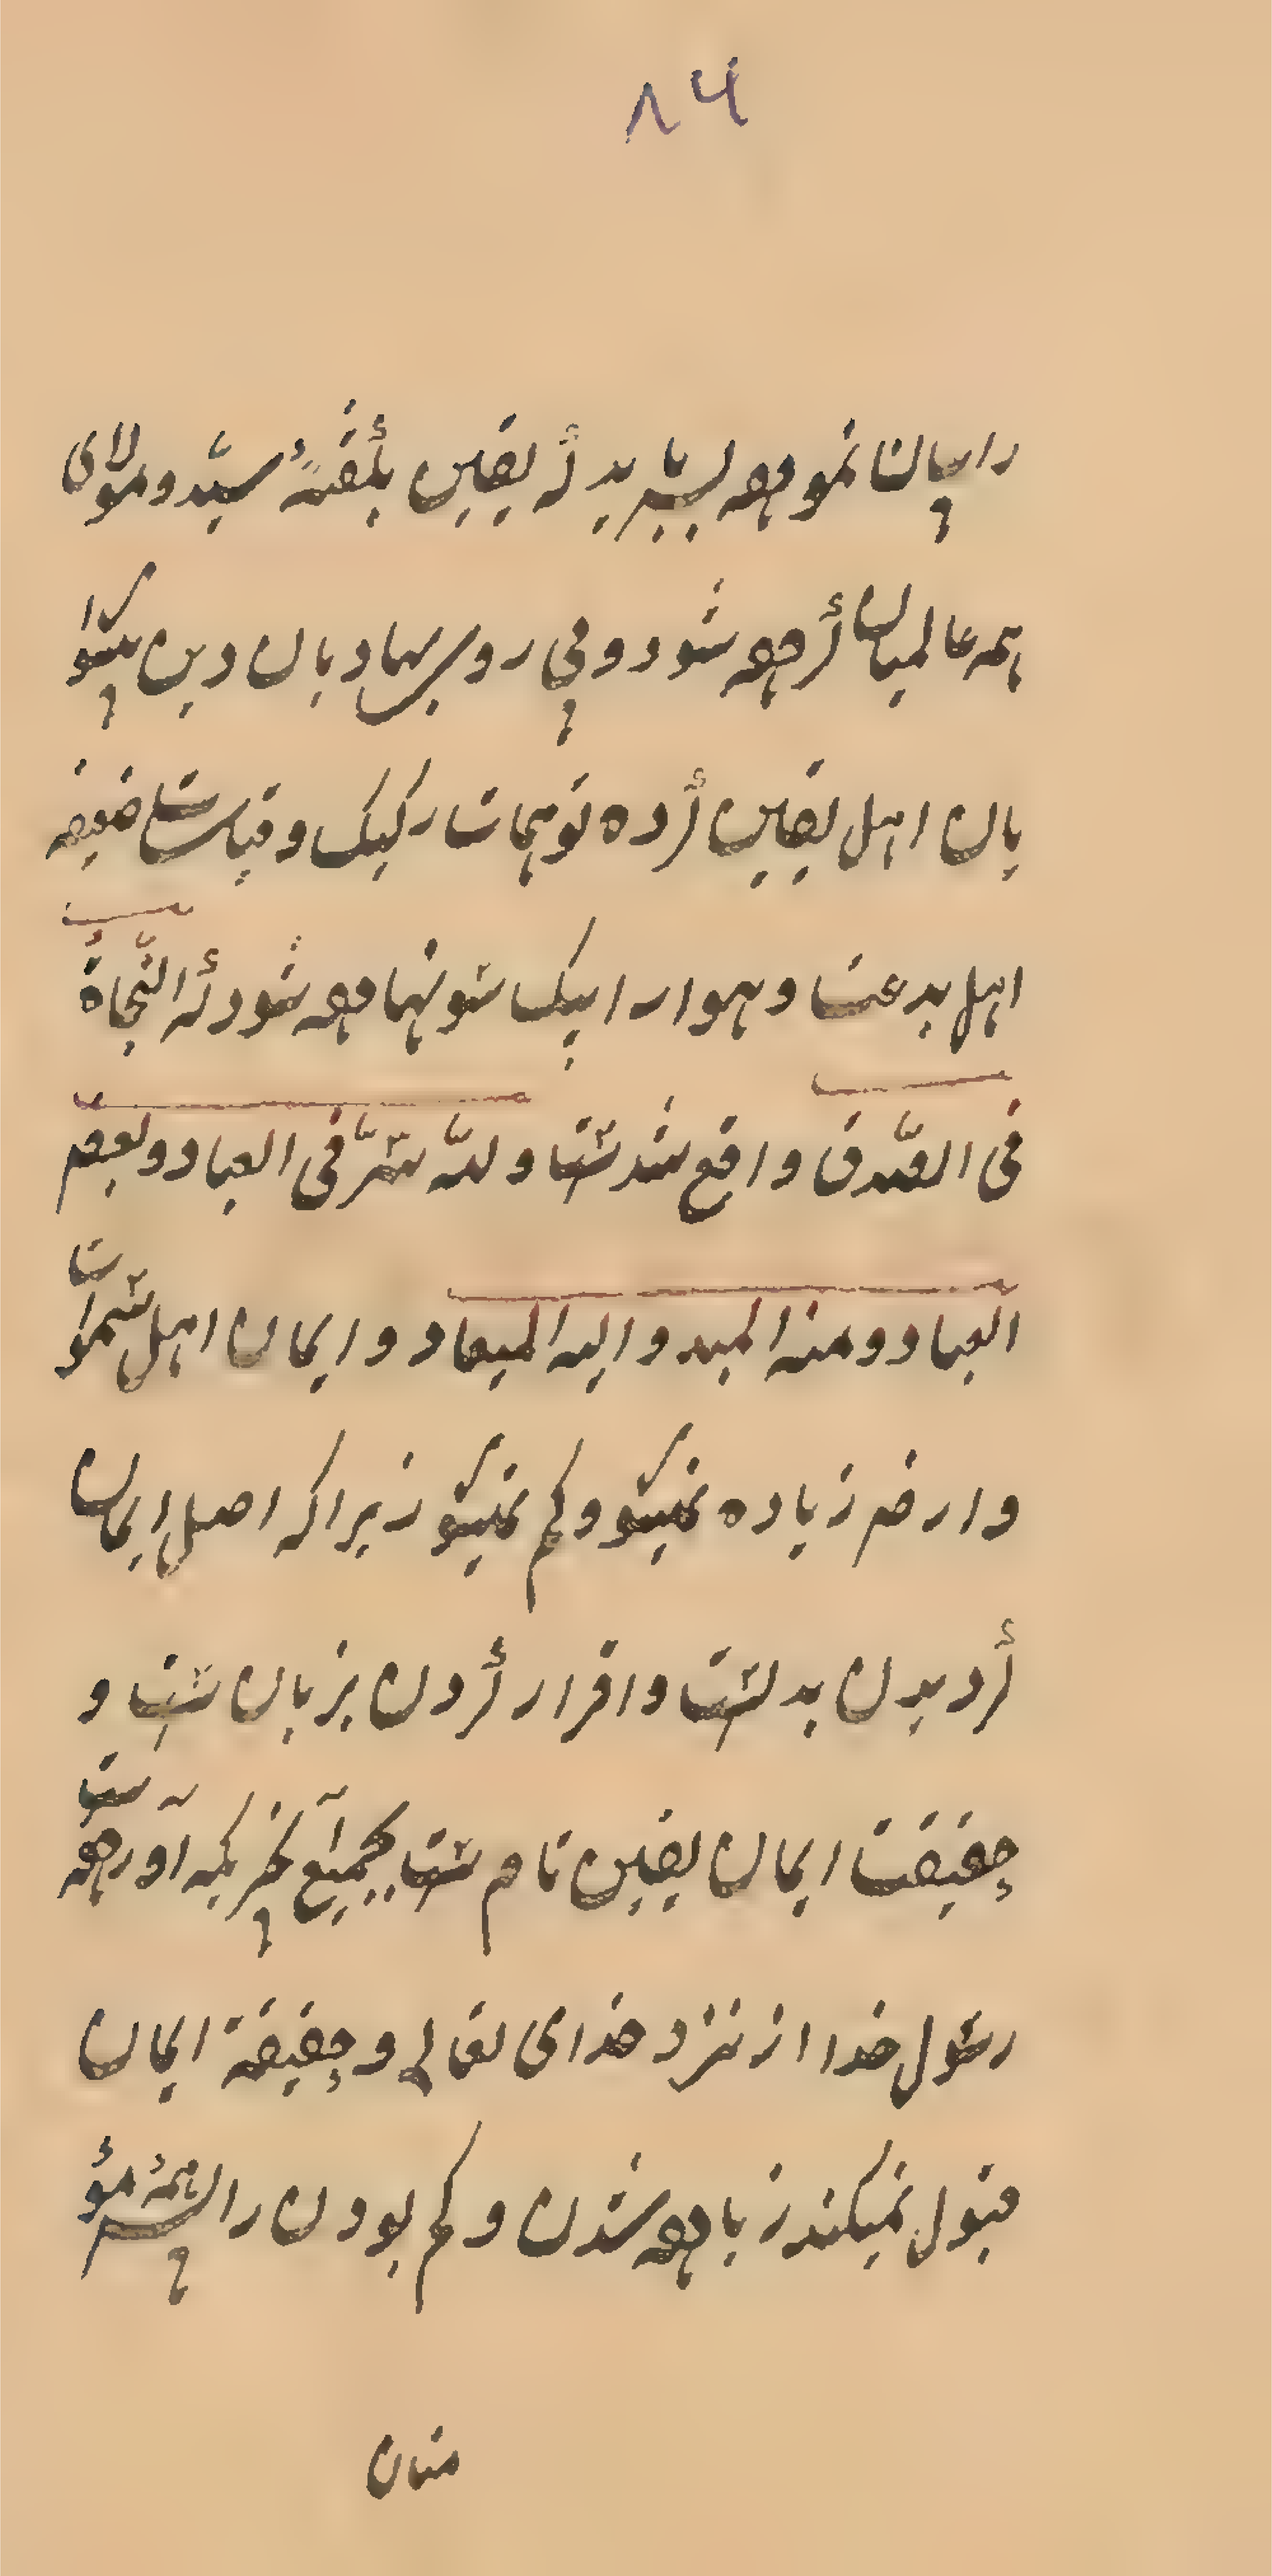 ۸۴
را بیان نموده بس باید که یقین بگفتهٔ سیّد و مولای
همه عالمیان کرده شود و پی روی بهادیان دین پیشوا
یان اهل یقین کرده توهمات رکیک و قیاسات ضعیفه
اهل بدعت و هوا را بیک سو نهاده شود که النّجاة
فی الصّدق واقع شدست و لله سرّ فی العباد و لبعض
العباد و منه المبدء و الیه المیعاد و ایمان اهل سموات
و ارض زیاده نمیشود و کم نمیشود زیرا که اصل ایمان
کردیدن بدلست و اقرار کردن بزبان ست و
حقیقت ایمان یقین نام ست بجمیع آن چیزیکه آورده ست
رسول خدا از نزد خدای تعالی و حقیقة ایمان
قبول نمیکند زیاده شدن و کم بودن را پس همهٔ مؤ
منان